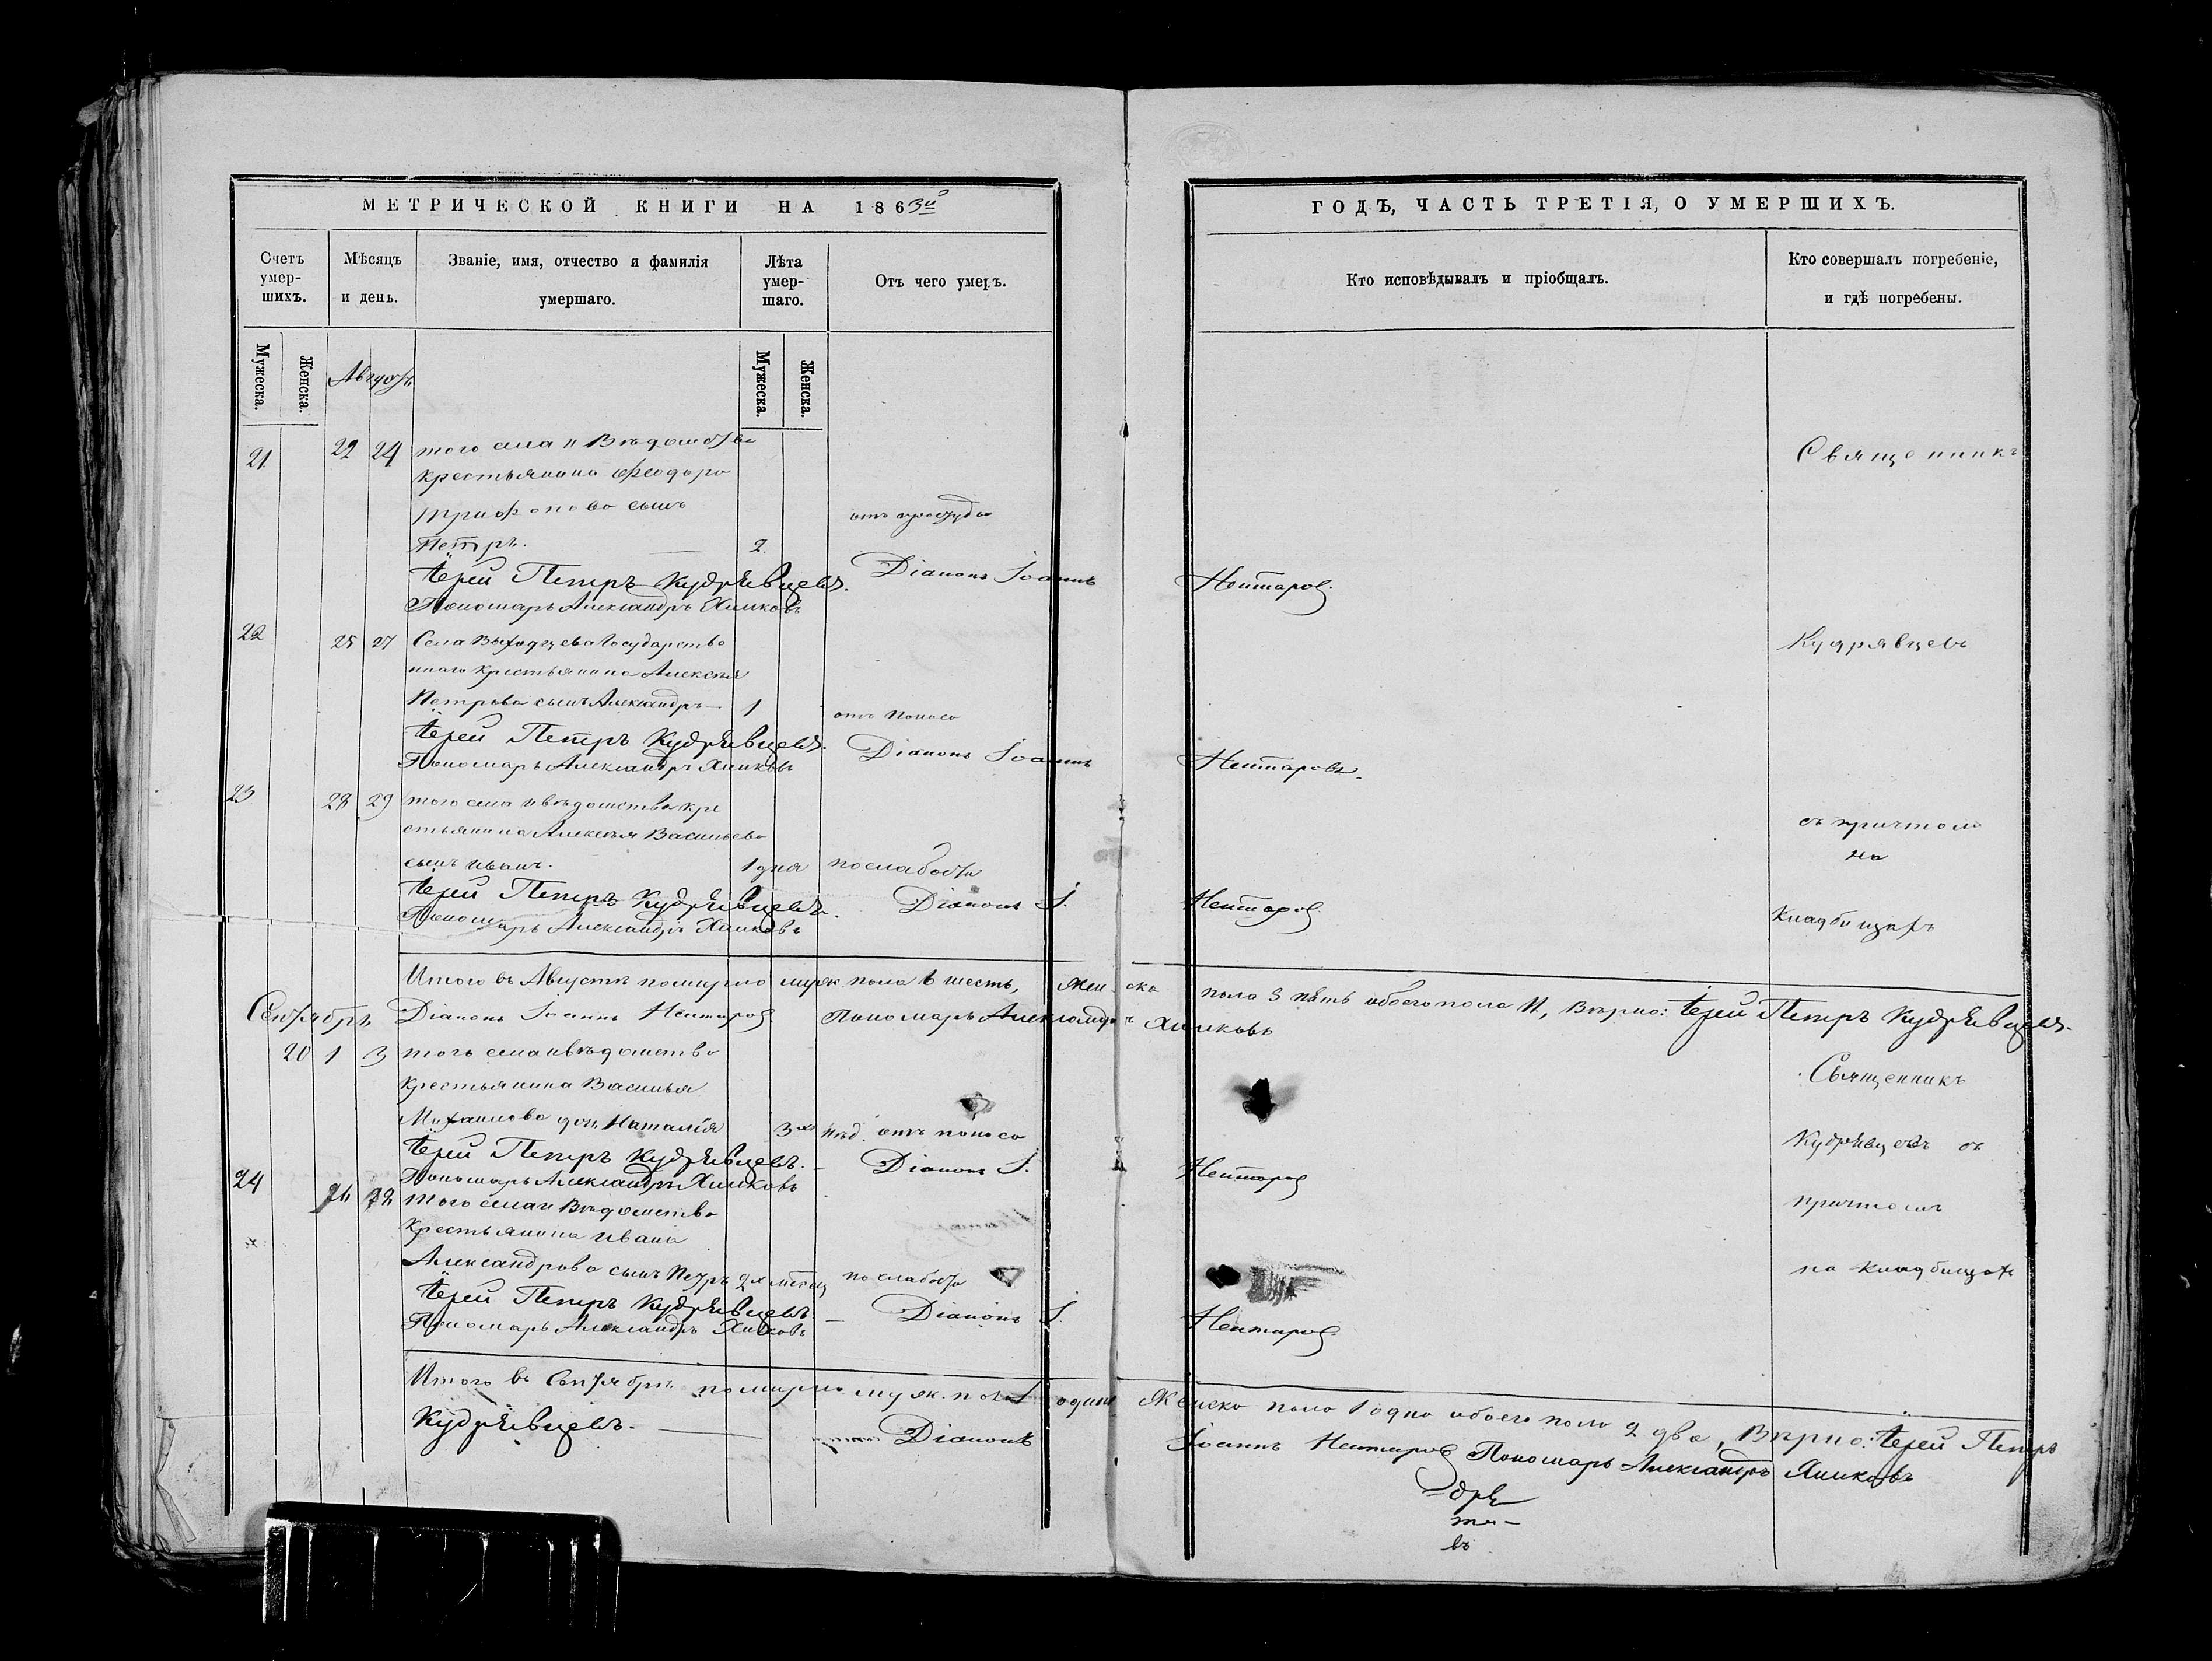 МЕТРИЧЕСКОЙ КНИГИ НА 1863й
ГОДЪ, ЧАСТЬ ТРЕТІЯ, О УМЕРШИХЪ.
Счетъ умер-шихъ.
Мѣсяцъ и день.
Званіе, имя, отчество и фамилія умершаго.
Лѣта умер-шаго.
Отъ чего умеръ.
Кто исповѣдывалъ и пріобщалъ.
Кто совершалъ погребеніе, и гдѣ погребены.
Мужеска.
Женска.
Мужеска.
Женска.
Августъ
21 22 24 того села и Вѣдомства
крестьянина Феодора
Трифонова сынъ
отъ простуды
Петръ. 2
Іерей Петръ Кудрявцевъ. Діаконъ Іоаннъ Нектаровъ
Пономарь Александръ Хилковъ
Священникъ
22 25 27 Села Выходцева Государстве
ннаго крестьянина Алексѣя
Петрова сынъ Александръ 1 отъ поноса
Іерей Петръ Кудрявцевъ. Діаконъ Іоаннъ Нектаровъ.
Пономарь Александръ Хилковъ
Кудрявцевъ
23 28 29 того села и вѣдомства кре
стьянина Алексѣя Васильева
сынъ Иванъ. 1 дня по слабости
Іерей Петръ Кудрявцевъ. Діаконъ І. Нектаровъ
Пономарь Александръ Хилковъ
съ причтомъ
на
кладбищѣ
Итого въ Августѣ померло муж. пола 6 шесть, женска пола 5 пять обоего пола 11, Вѣрно: Іерей Петръ Кудрявцевъ.
Діаконъ Іоаннъ Нектаровъ Пономарь Александръ Хилковъ
Сентябрь
20 1 3 того села и вѣдомства
крестьянина Василья
Михаилова дочь Наталія 3хъ нѣд. отъ поноса
Іерей Петръ Кудрявцевъ. Діаконъ І. Нектаровъ
Пономарь Александръ Хилковъ
Священникъ
Кудрявцевъ съ
24 того села и Вѣдомства
крестьянина Ивана
Александрова сынъ Петръ 2х мѣсяц по слабости
Іерей Петръ Кудрявцевъ. Діаконъ І. Нектаровъ
Пономарь Александръ Хилковъ
причтомъ
на кладбищѣ
Итого въ Сентябрѣ померло муж. пола 1 одинъ женска пола 1 одна обоего пола 2 два, Вѣрно: Іерей Петръ
Кудрявцевъ. Діаконъ Іоаннъ Нектаровъ Пономарь Александръ Хилковъ